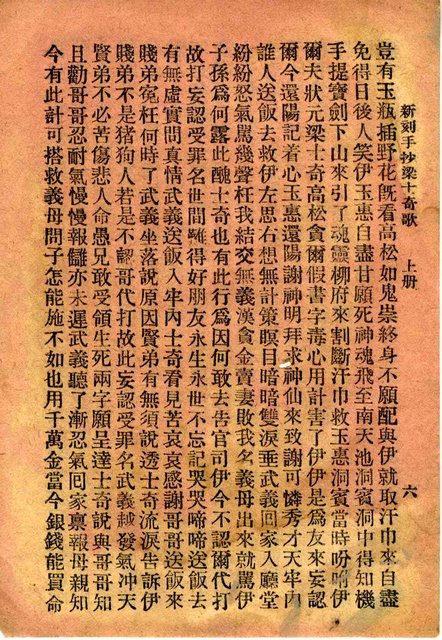 新刻手抄梁士奇歌　上册　六
豈有玉瓶插野花旣看高松如鬼祟終身不願配與伊就取汗巾來自盡
免得日後人笑伊玉惠自盡甘願死神魂飛至南天池洞賓洞中得知機
手提寶劍下山來引了魂靈柳府來割斷汗巾救玉惠洞賓當時吩咐伊
爾夫狀元梁士奇高松貪爾假書字毒心用計害了伊伊是爲友來妄認
爾今還陽記着心玉惠還陽謝神明拜求神仙來致謝可憐秀才天牢內
誰人送飯去救伊左思右想無計策瞑目暗暗雙淚垂武義回家入廳堂
紛紛怒氣罵幾聲枉我結交無義漢貪金賣妻敗我名義母出來就罵伊
子孫爲何露此醜士奇也有此行爲因何敢去告官司伊今不認爾代打
故打妄認受罪名世間難得好朋友永生永世不忘記哭哭啼啼送飯去
有無虛實問眞情武義送飯入牢內士奇看見苦哀哀感謝哥哥送飯來
賤弟冤枉何時了武義坐落說原因賢弟有無須說透士奇流淚告訴伊
賤弟不是豬狗人若是不認哥代打故此妄認受罪名武義越發氣冲天
賢弟不必苦傷悲人命愚兄敢受領生死兩字願呈達士奇說與哥哥知
且勸哥哥忍耐氣慢慢報讎亦未遲武義聽了漸忍氣回家裏報母親知
今有此計可搭救義母問子怎能施不如也用千萬金當今銀錢能買命